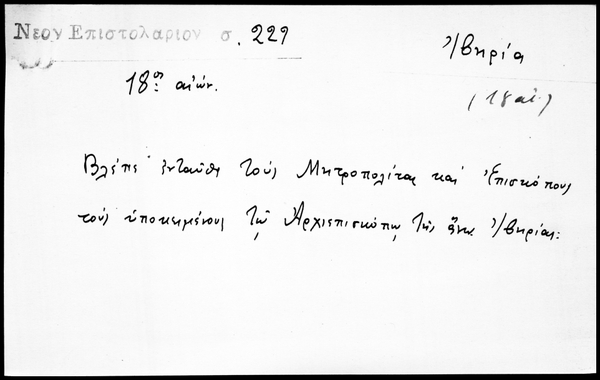 Νεον Επιστολαριον σ. 229
Ἰβηρία
18ος αἰών.
(18 αἰ.)
Βλέπε ἐνταῦθα τοὺς Μητροπολίτας καὶ Ἐπισκόπους
τοὺς ὑποκειμένους τῷ Ἀρχιεπισκόπῳ τῆς ἄνω Ἰβηρίας: